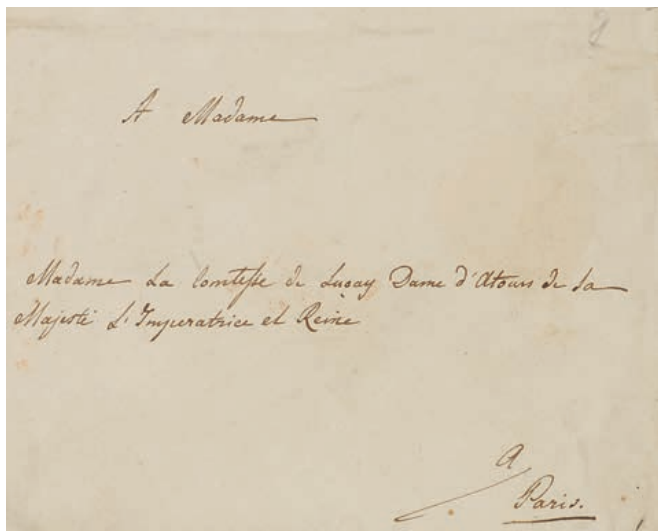 A Madame
Madame La Comtesse de Luçay Dame d'Atours de Sa
Majesté L'Imperatrice et Reine
A
Paris.